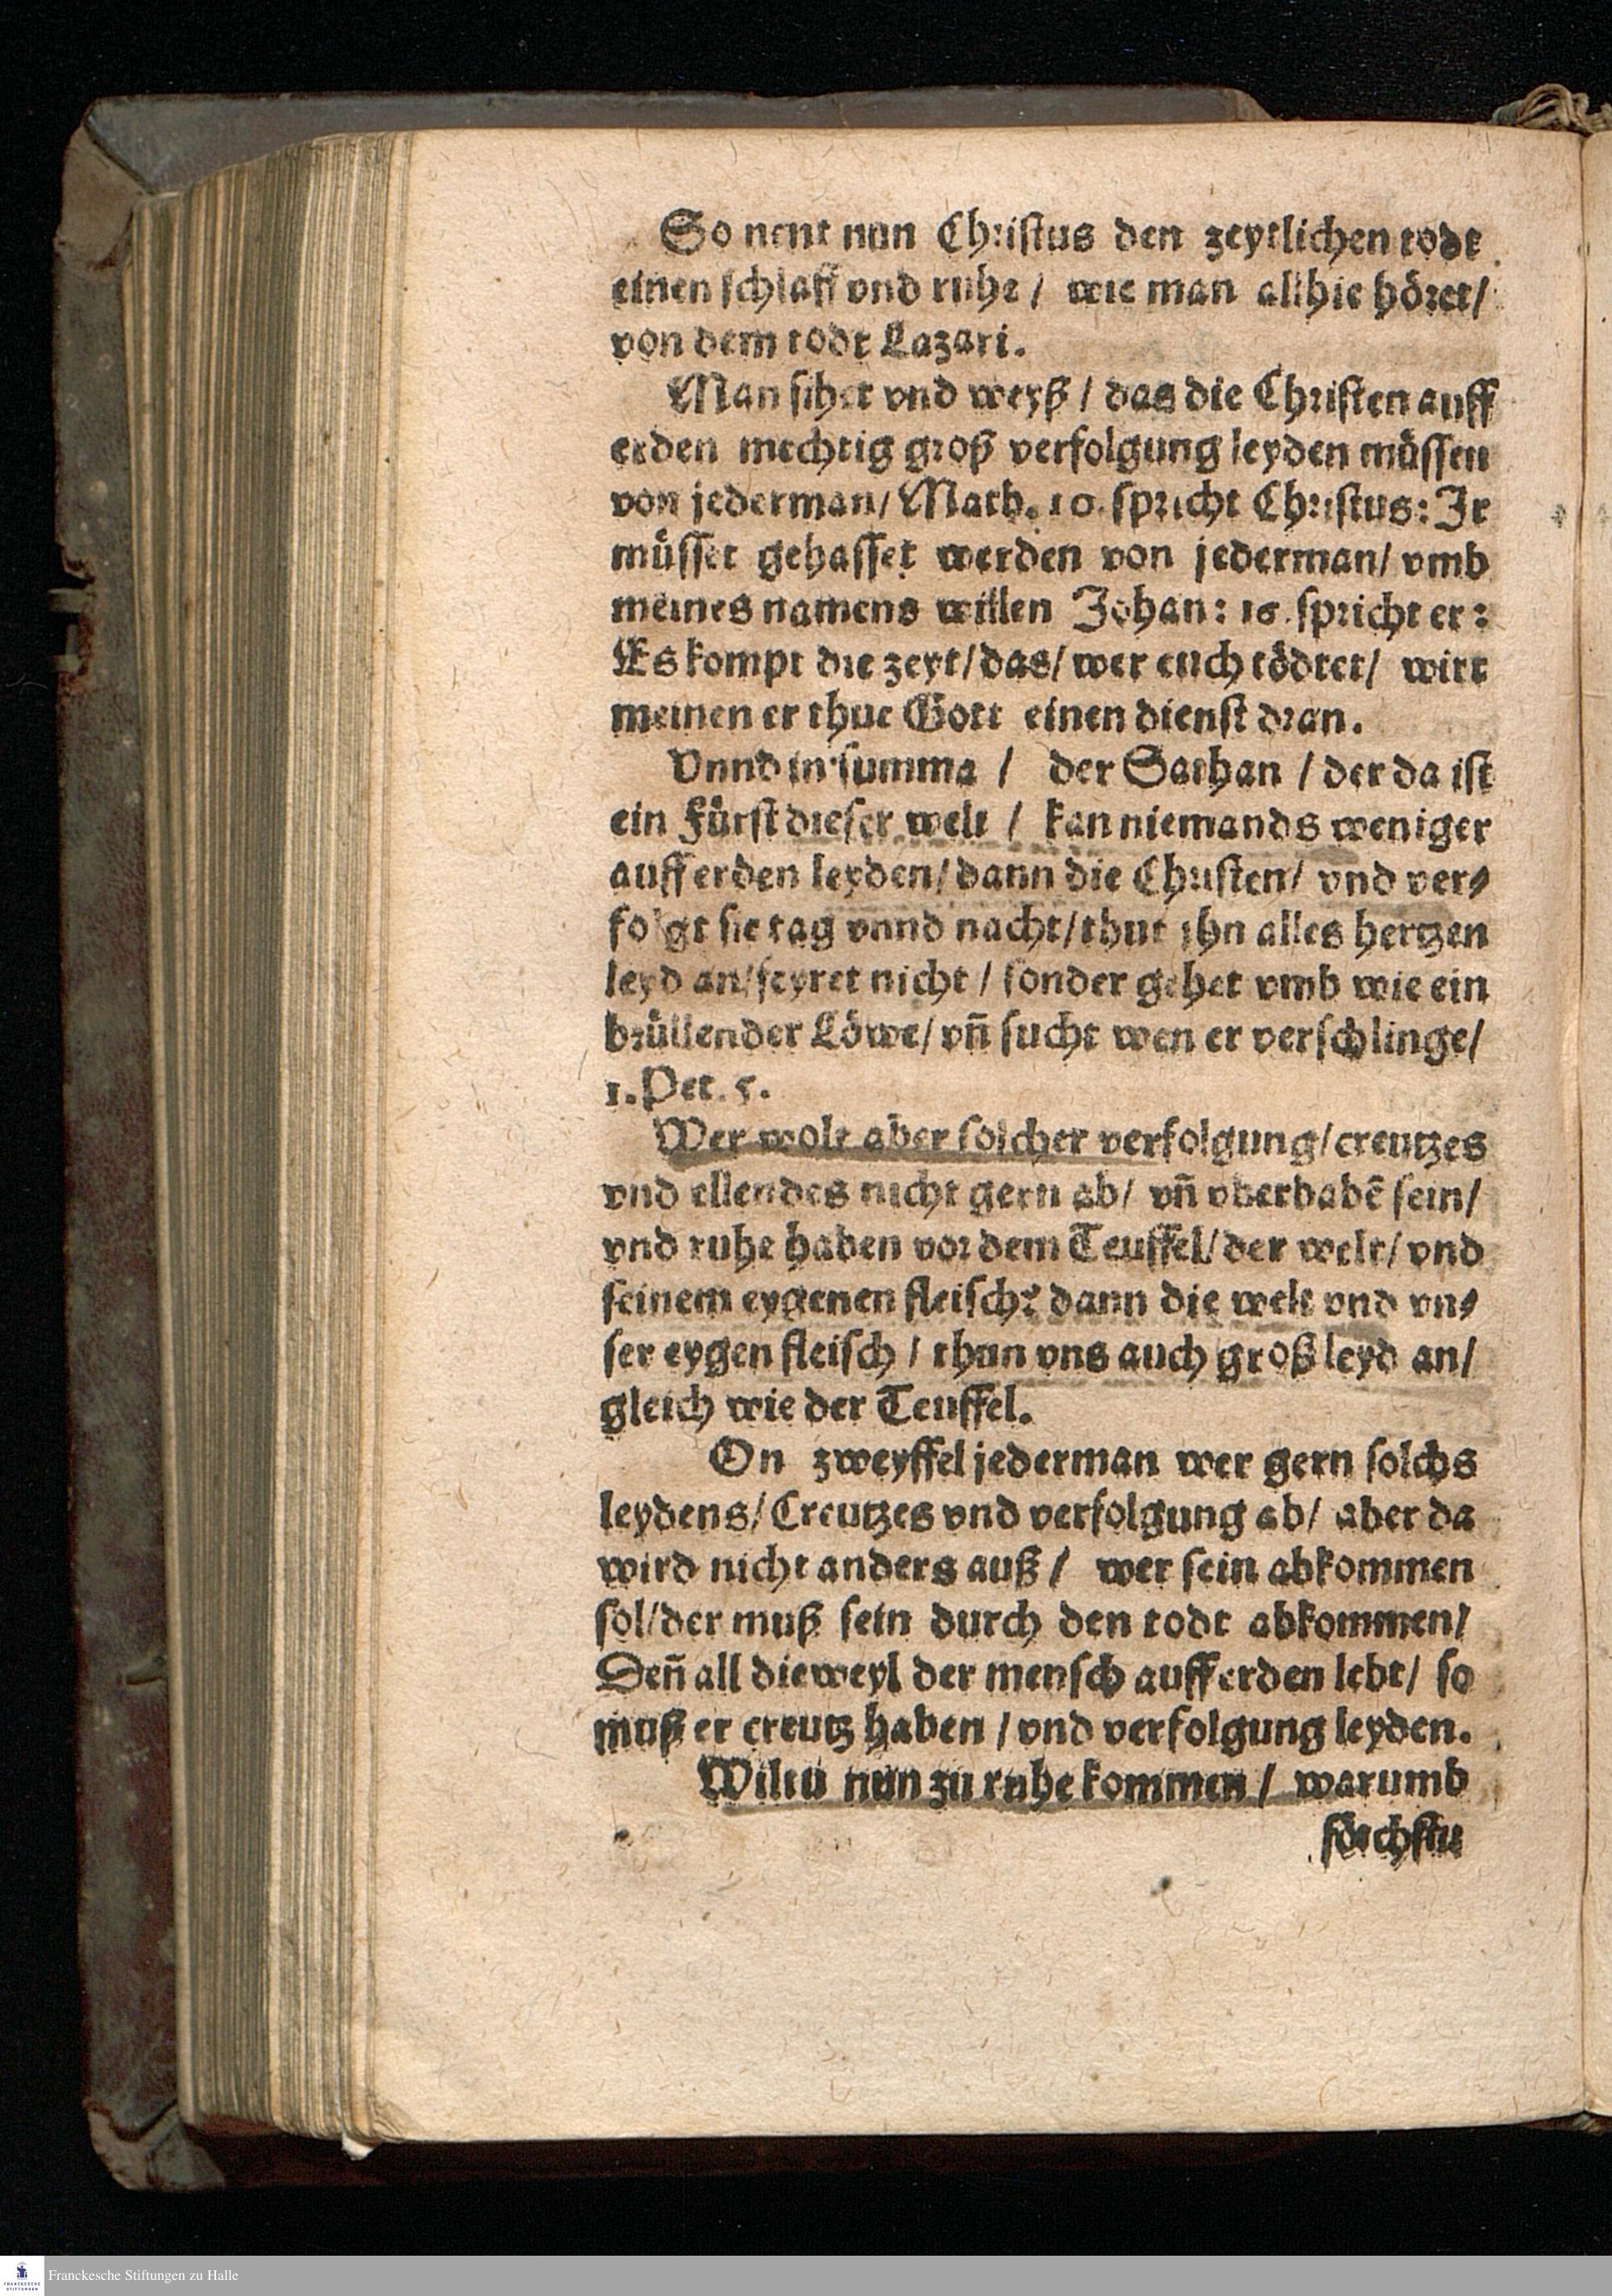 So nent nun Christus den zeytlichen todt
einen schlaff vnd ruhe / wie man allhie höret /
von dem todt Lazari.
Man sihet vnd weyß / das die Christen auff
erden mechtig groß verfolgung leyden müssen
von jederman / Math. 10. spricht Christus: Ir
müsset gehasset werden von jederman / vmb
meines namens willen Johan: 16. spricht er:
Es kompt die zeyt / das / wer euch tödtet / wirt
meinen er thue Gott einen dienst dran.
Vnnd in summa / der Sathan / der da ist
ein Fürst dieser welt / kan niemands weniger
auff erden leyden / dann die Christen / vnd ver⸗
folgt sie tag vnnd nacht / thut ihn alles hertzen
leyd an / feyret nicht / sonder gehet vmb wie ein
brüllender Löwe / vñ sucht wen er verschlinge /
1. Pet. 5.
Wer wolt aber solcher verfolgung / creutzes
vnd ellendes nicht gern ab / vñ vberhabẽ sein /
vnd ruhe haben vor dem Teuffel / der welt / vnd
seinem eygenen fleisch? dann die welt vnd vn⸗
ser eygen fleisch / thun vns auch groß leyd an /
gleich wie der Teuffel.
On zweyffel jederman wer gern solchs
leydens / Creutzes vnd verfolgung ab / aber da
wird nicht anders auß / wer sein abkommen
sol / der muß sein durch den todt abkommen /
Deñ all dieweyl der mensch auff erden lebt / so
muß er creutz haben / vnd verfolgung leyden.
Wiltu nun zu ruhe kommen / warumb
förchstu
Franckesche Stiftungen zu Halle
FRANCKESCHE
STIFTUNGEN